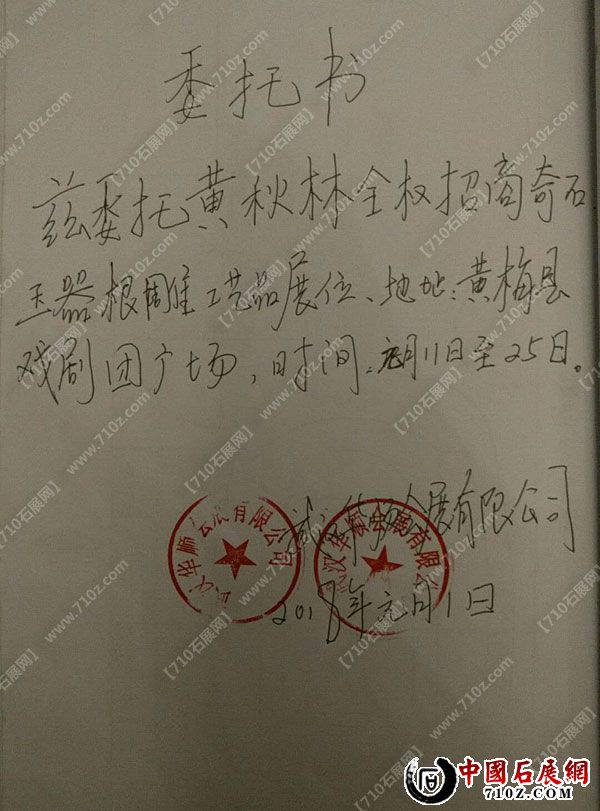 委托书
兹委托黄秋林全权招商奇石
玉器根雕工艺品展位、地址:黄梅县
戏剧团广场,时间:元月11日至25日。
武汉华顺会展有限公司
2018年元月1日
武汉华顺会展有限公司
武汉华顺会展有限公司
【710石展网】
www.710z.com
中國石展網
710Z.COM